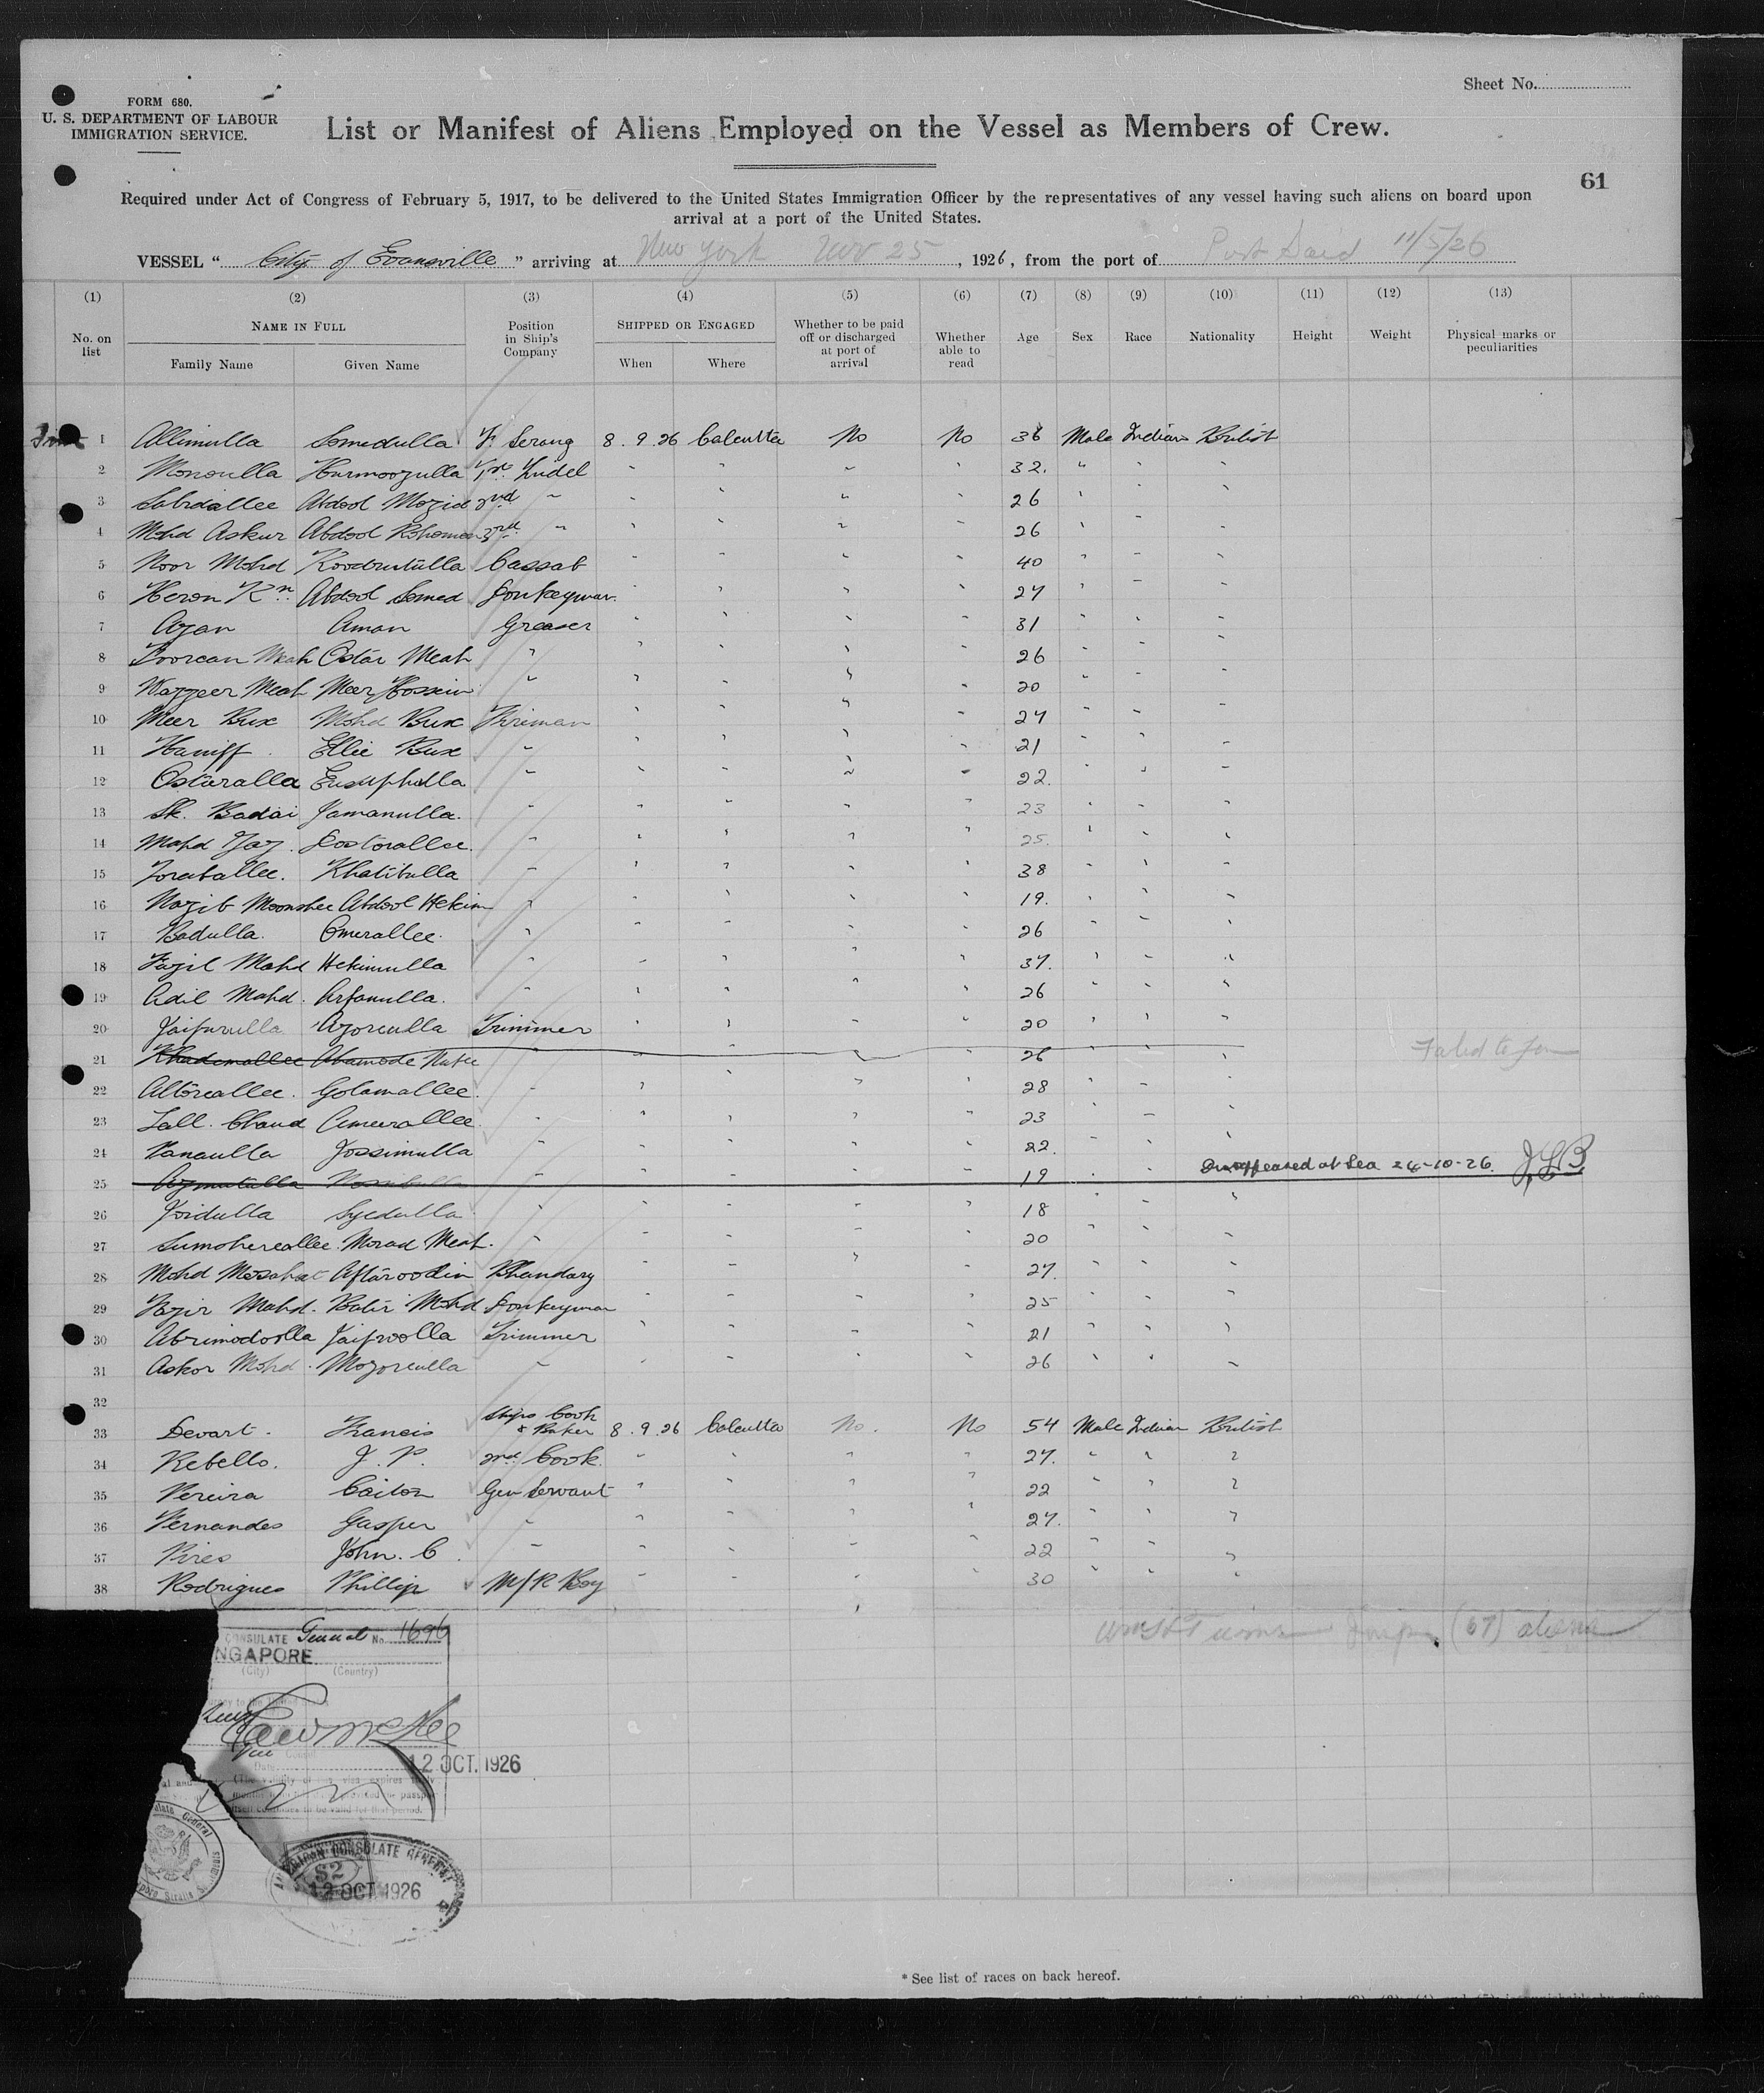 Sheet No.
FORM 680.
U. S. DEPARTMENT OF LABOUR
IMMIGRATION SERVICE.
List or Manifest of Aliens Employed on the Vessel as Members of Crew.
61
Required under Act of Congress of February 5, 1917, to be delivered to the United States Immigration Officer by the representatives of any vessel having such aliens on board upon
arrival at a port of the United States.
VESSEL " City of Evansville " arriving at New York Nov 25, 1926, from the port of Port Said 11/5/26
(1) (2) (3) (4) (5) (6) (7) (8) (9) (10) (11) (12) (13)
No. on list NAME IN FULL Family Name Given Name Position in Ship's Company SHIPPED OR ENGAGED When Where Whether to be paid off or discharged at port of arrival Whether able to read Age Sex Race Nationality Height Weight Physical marks or peculiarities
1 Allimulla Somedulla F. Serang 8.9.26 Calcutta No No 36 Male Indian British
2 Monorulla Hurmoozulla 1st Tindel " " " " 32. " " "
3 Sabdallee Abdool Mozid 2nd " " " " " 26 " " "
4 Mohd Askur Abdool Rohoman 3rd " " " " " 26 " " "
5 Noor Mohd Koodrutulla Cassab " " " " 40 " " "
6 Heron Abdool Somed Donkeyman " " " " 27 " " "
7 Azan Aman Greaser " " " " 31 " " "
8 Noorean Meah Ostar Meah " " " " " 26 " " "
9 Wazzeer Meah Meer Hossein " " " " " 20 " " "
10 Meer Bux Mohd Bux Firiman " " " " 27 " " "
11 Haniff Ellie Bux " " " " " 21 " " "
12 Ostaralla Eusuphulla " " " " " 22. " " "
13 Sk. Badai Jamanulla. " " " " " 23 " " "
14 Mahd Dostorallee. " " " " " 25. " " "
15 Toraballee. Khatibulla " " " " " 38 " " "
16 Nazib Moonshee Abdool Hekim " " " " " 19. " " "
17 Badulla. Omerallee. " " " " " 26 " " "
18 Fazil Mahd Hekimulla " " " " " 37. " " "
19 Adil Mahd. Arfanulla. " " " " " 26 " " "
20 Joifurulla Azoreulla Trimmer " " " " 20 " " "
21 Khademallee " " " " " 26 " " " Failed to Join
22 Altoreallee. Golamallee. " " " " " 28 " " "
23 Lall. Chand Ameerallee. " " " " " 23 " " "
24 Jossimulla " " " " " 22. " " "
25 Azmutulla " " " " " 19 " " Disappeared at Sea 24-10-26. JLB
26 Joidulla Syedulla " " " " " 18 " " "
27 Sumohereallee. Morad Meah. " " " " " 20 " " "
28 Mohd Mosahat Aftaroodin Bhandary " " " " 27. " " "
29 Fazir Mahd. Batir Mohd Donkeyman " " " " 25 " " "
30 Abrimodoolla Jaifroolla Trimmer " " " " 21 " " "
31 Askor Mohd. Mozoreulla " " " " " 26 " " "
32
33 Devart. Francis Ships Cook & Baker 8.9.26 Calcutta No. No 54 Male Indian British
34 Rebello. J. P. 2nd Cook. " " " " 27. " " "
35 Pereira Caiton Gen Servant " " " " 22 " " "
36 Fernandes Gasper " " " " " 27. " " "
37 Pires John. C. " " " " " 22 " " "
38 Rodrigues Phillip M/R Boy " " " " 30 " " "
(67) aliens
CONSULATE General No. 1696
NGAPORE
(City) (Country)
12 OCT. 1926
AMERICAN CONSULATE GENERAL
$2
12 OCT 1926
* See list of races on back hereof.